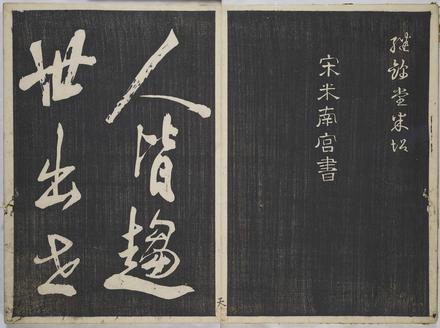 堂米帖
宋米南宮書
人皆趨
世出世
天